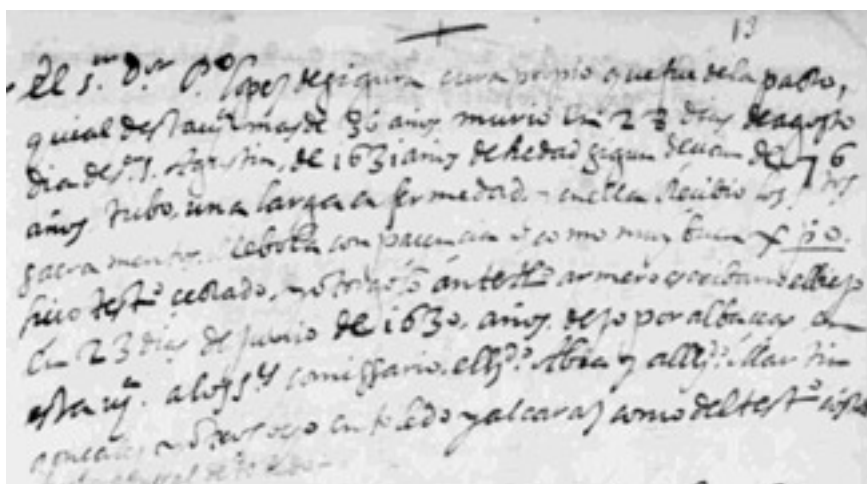 13
El s.r D.r P.o lopez de sigura cura propio que fue de la parro,
quial desta mas de 36 años murio en 28 dias de agosto
dia de s. Agustin, de 1631 años de hedad sigun decian de 76
años tubo, una larga enfermedad, y en ella Recibio los s.tos
sacramentos. llebola con paciencia y como muy buen xpo.
hiço test.o cerrado, y otorgoso ante armero escribano el biejo
En 23 dias de junio de 1630, años. dejo por albaceas en
esta a los s.s comissario. el liz.do Abia y al liz.do Martin
gonçales y otros en toledo y alcaraz como del test.o